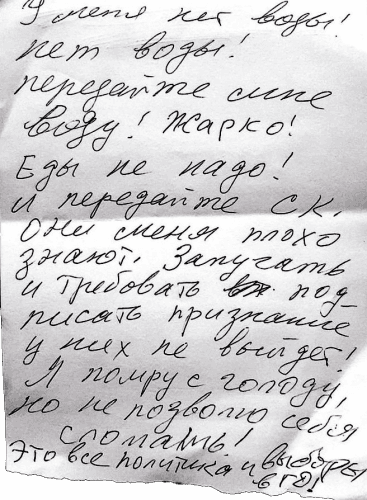 У меня нет воды!
нет воды!
передайте мне
воду! Жарко!
Еды не надо!
и передайте СК,
они меня плохо
знают. Запугать
и требовать под-
писать признание
у них не выйдет!
Я помру с голоду,
но не позволю себя
сломать!
Это все политика и выборы
в ГО!